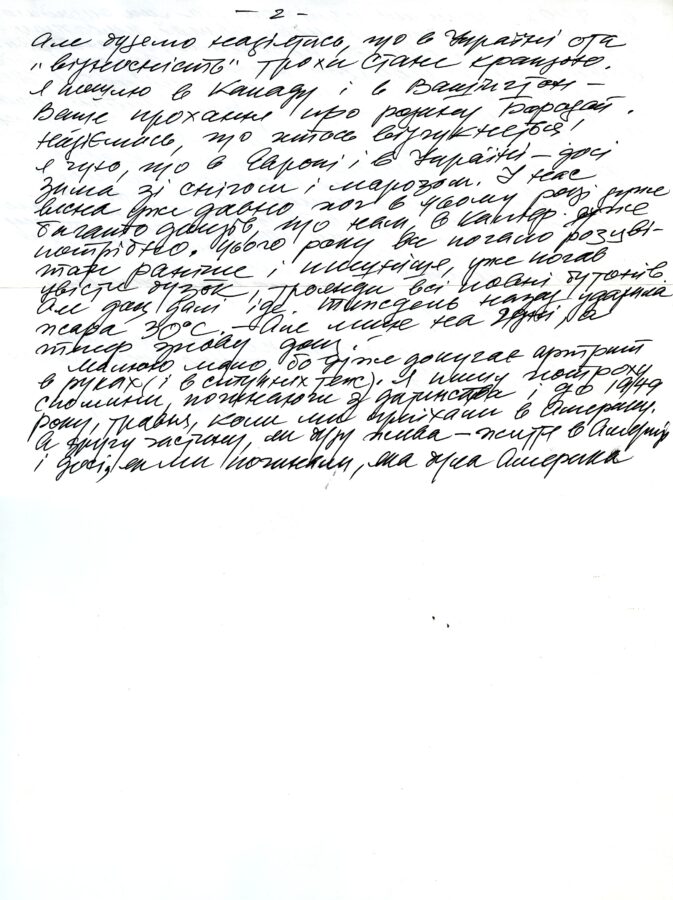 — 2 —
Але будемо надіятись, що в Україні ота
"відносність" трохи стане кращою.
Я пошлю в Канаду і в Вашінгтон —
Ваше прохання про родину Бородай.
Надіємось, що хтось відгукнеться!
Я чую, що в Европі і в Україні — досі
зима зі снігом і марозом. У нас
весна уже давно хоч в цьому році дуже
багато дощів, що нам, в Каліф. дуже
потрібно. Цього року все почало розцві-
тати раніше і пишніше, уже почав
цвісти бузок, троянди всі повні бутонів.
Але дощ далі іде. Тиждень назад ударила
жара 30°C. — Але лише на 2 дні, а
тепер знову дощ!
Малюю мало, бо дуже докучає артрит
в руках (і в ступнях теж). Я пишу потроху
спомини, починаючи з дитинства і до 1949
року, травня, коли ми приїхали в Америку.
А другу частину, як буду жива — життя в Америці
і досі, як ми починали, яка була Америка